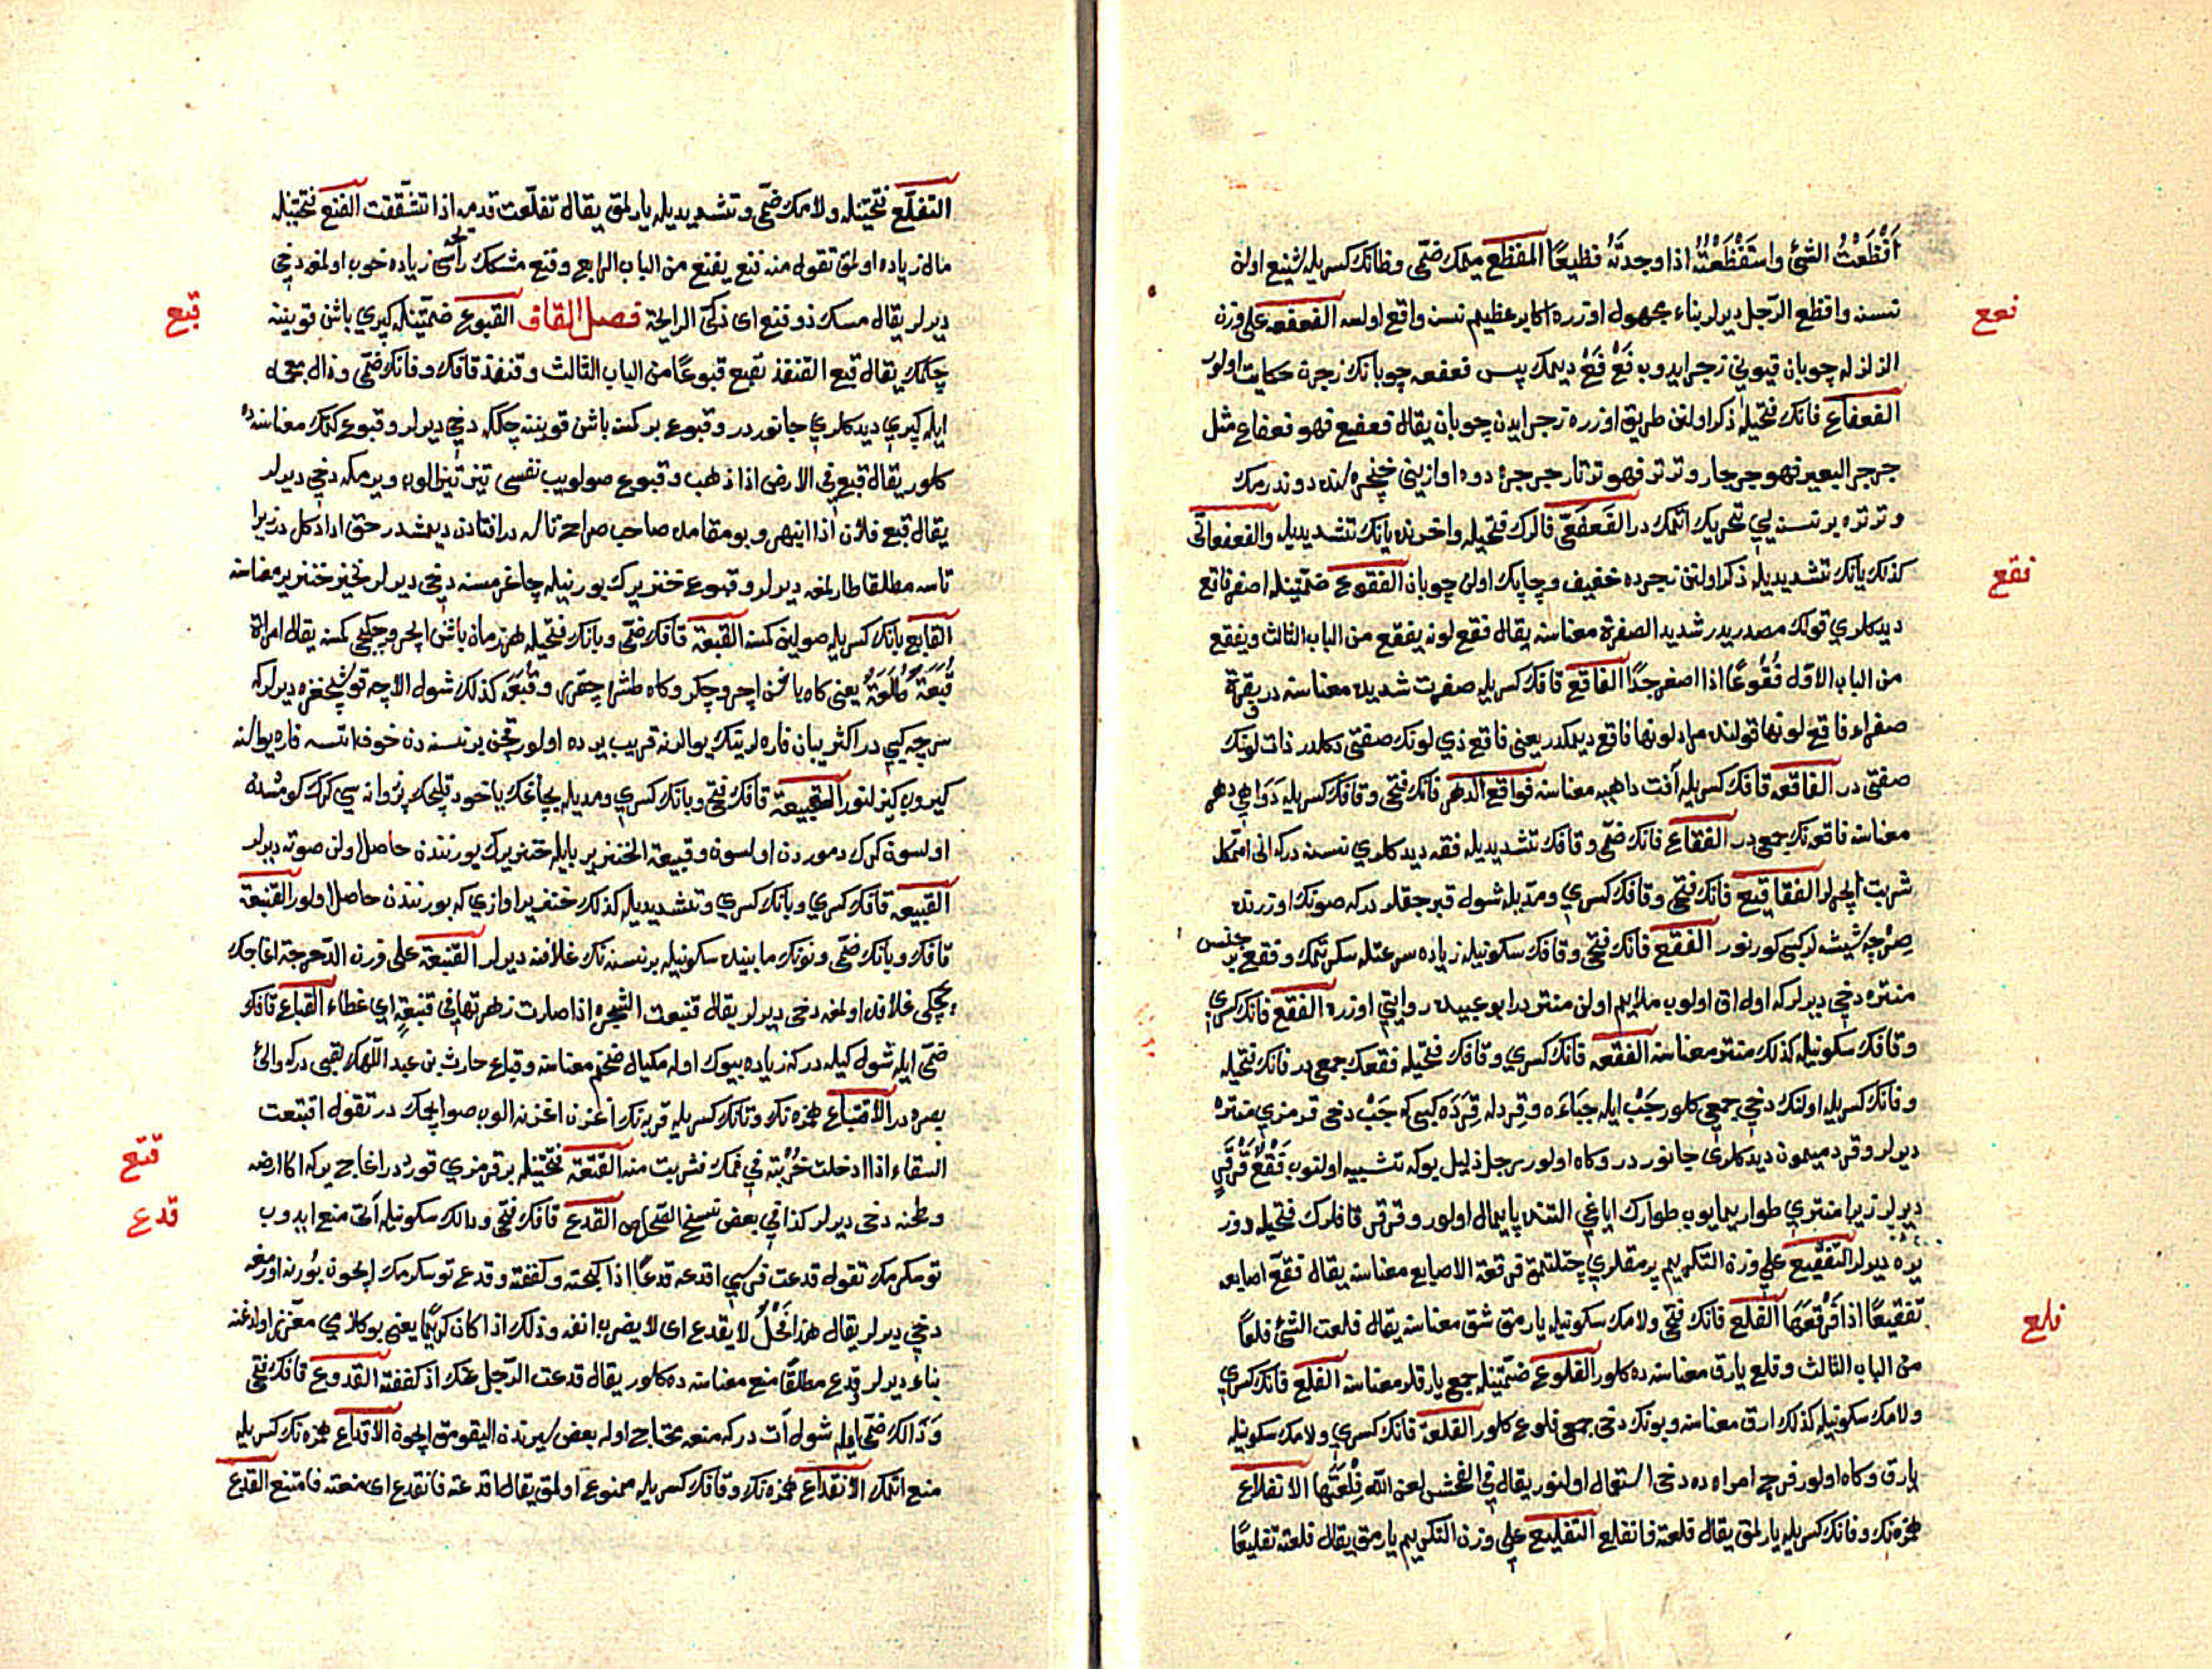 أَفْظَعْتُ الشئ واستَفْظَعْتُهُ اذا وجدتَهُ فظيعًا المفظع ميمك ضمّى وظانك كسريله شنيع اولن
نسنه وافظع الرّجل ديرلر بناء مجهول اوزره اكا بر عظيم نسنه واقع اولسه الفعفعه على وزن
فعع
الزلزله چوبان قيونى زجر ايدوب فَعْ فَعْ ديمك پس فعفعه چوبانك زجرن حكايت اولور
الفعفاع فانك فتحيله ذكر اولنن طريق اوزره زجر ايدن چوبان يقال فعفع فهو فعفاع مثل
جرجر البعير فهو جرجار وثرثر فهو ثرثار جرجره دوه اوازينى خنجره‌سنده دوندرمك
وترتره بر نسنه يى تحريك اتمك در الفَعفَعىّ فالرك فتحيله واخرنده يانك تشديديله والفعفعانىّ
كذلك يانك تشديديله ذكر اولنن زجرده خفيف وچاپك اولن چوبان الفقوع ضمّتينله اصفر فاقع
فقع
ديدكلرى قولك مصدريدر شديد الصفرة معناسنه يقال فقع لونه يفقع من الباب الثالث ويفقع
من الباب الاوّل فُقُوعًا اذا اصفر جدًّا الفاقع قافك كسريله صفرت شديده معناسنه در بقرة
صفراء فاقع لونها قولنده مراد لونها فاقع ديمكدر يعنى فاقع ذى لونك صفتى دكلدر ذات لونك
صفتى در الفاقعه قافك كسريله آفت داهيه معناسنه فواقع الدهر فانك فتحى وقافك كسريله دَوَاهى دهر
معناسنه فاقعه نك جمعى در الفقاع فانك ضمّى وقافك تشديديله فقه ديدكلرى نسنه دركه انى اتمكله
شربت ايچرلر الفقاقيع فانك فتحى وقافك كسرى ومدّيله شول قبرجقلر دركه صونك اوزرنده
صرچه شيشه لر كبى كورنور الفقع فانك فتحى وقافك سكونيله زياده سرعتله سكرتمك وفقع بر جنس
منتره دخى ديرلركه اول اق اولوب ملايم اولن منتر در ابو عبيده روايتى اوزره الفقع فانك كسرى
وقافك سكونيله كذلك منتر معناسنه الفقعه فانك كسرى وقافك فتحيله فقعك جمعى در فانك فتحيله
وفانك كسريله اولنك دخى جمعى كلور جَبْ ايله جَبَاءَه وقِرْد له قِرَدَه كبى كه جَبْ دخى قرمزى منتره
ديرلر وقرد ميمون ديدكلرى جانور در وكاه اولور رجل ذليل بوكه تشبيه اولنوب فَقْعُ قَرْقَرٍ
ديرلر زيرا منترى طوار يمايوب طوارك اياغى التنده پايمال اولور وقرقر قافلرك فتحيله دوز
يره ديرلر التّفقيع على وزن التّكريم پرمقلرى چتلتمق فرقعة الاصابع معناسنه يقال فقّع اصابعه
تفقيعًا اذا فَرْقَعَهَا الفلع فانك فتحى ولامك سكونيله يارمق شق معناسنه يقال فلعت الشئ فلعًا
فلع
من الباب الثالث وفلع يارق معناسنه ده كلور الفلوع ضمّتينله جمع يارقلر معناسنه الفلع فانك كسرى
ولامك سكونيله كذلك يارق معناسنه وبونك دخى جمعى فلوع كلور الفلعة فانك كسرى ولامك سكونيله
يارق وكاه اولور فرج امراه ده دخى استعمال اولنور يقال فى الفحش لعن الله فِلْعَتَها الانفلاع
همزه نك وفانك كسريله يارلمق يقال فلعته فانفلع التفليع على وزن التكريم يارمق يقال فلعته تفليعًا
التفلّع فتحتينله ولامك ضمّى وتشديديله يارلمق يقال تفلّعت قدمه اذا تشقّقت الفنع فتحتينله
مال زياده اولمق تقول منه فنع يفنع من الباب الرابع وفنع مشكك رائحه‌سى زياده خوب اولمغه دخى
ديرلر يقال مسك ذو فنع اى ذكىّ الرايحة فصل القاف القبوع ضمّتينله كيرپى باشن قوينه
قبع
چكمك يقال قبع القنفذ يقبع قبوعًا من الباب الثالث وقنفذ قافك وفانك ضمّى وذال معجمه
ايله كيرپى ديدكلرى جانور در وقبوع بر كسنه باشن قوينه چكمكه دخى ديرلر وقبوع كتمك معناسنده
كلور يقال قبع فى الارض اذا ذهب وقبوع صولويب نفسى تيز تيز الوب ويرمكه دخى ديرلر
يقال قبع فلان اذا انبهر وبو مقامده صاحب صراح ناله در افتادن ديمشدر حق ادا دكل در زيرا
ناسه مطلقا طارلمغه ديرلر وقبوع خنزيرك بورنيله چاغرمسنه دخى ديرلر نخير خنزير معناسنه
القابع بانك كسريله صولين كسنه القبعة قافك ضمّى وبانك فتحيله هر زمان باشن ايچرو چكيجى كسنه يقال امراة
قُبَعَةٌ طُلَعَةٌ يعنى كاه باشن ايچرو چكر وكاه طشره چقرر وقُبَعَه كذلك شول الاجه قوشجغزه ديرلركه
سرچه كبى در اكثر يبان فاره لرينك يوالرنه قريب يرده اولور قچن بر نسنه دن خوف اتسه فاره يواسنه
كيروب كيزلنور القبيعة قافك فتحى وبانك كسرى ومديله بچاغك ياخود قلجك پزوانه سى كرك كومشدن
اولسون كرك دموردن اولسون وقبيعة الخنزير بر بايله خنزيرك بورنندن حاصل اولن صوته ديرلر
القبيعه قافك كسرى وبانك كسرى وتشديديله كذلك خنزير اوازى كه بورنندن حاصل اولور القنبعة
قافك وبانك ضمّى ونونك مابينده سكونيله بر نسنه نك غلافنه ديرلر القنبعة على وزن الدّحرجة اغاجك
چچكى غلافلو اولمغه دخى ديرلر يقال قنبعت الشّجرة اذا صارت زهرتها فى قنبعةٍ اى غطاء القباع قافك
ضمّى ايله شول كيله دركه زياده بيوك اوله مكيال ضخم معناسنه وقباع حارث بن عبد اللّهك لقبى دركه والىّ
بصره در الاقتباع همزه نك وتانك كسريله قربه نك اغزن اغزنه الوب صو ايچمك در تقول اقتبعت
السقاء اذا ادخلت خُرْبَتَه فى فمك فشربت منه القتعة فتحتينله بر قرمزى قورد در اغاج يركه اكا ارضه
قتع
وطحنه دخى ديرلر كذا فى بعض نسخ الصّحاح القدع قافك فتحى ودالك سكونيله آتى منع ايدوب
قدع
توسكرمك تقول قدعت فرسى اقدعه قدعًا اذا كبحته وكففته وقدع توسكرمك ايچون بورنه اورمغه
دخى ديرلر يقال هذا فَحْلٌ لا يقدع اى لا يضرب انفه وذلك اذا كان كريمًا يعنى بوكلرى معزّز اولدغنه
بناءً ديرلر وقدع مطلقًا منع معناسنه ده كلور يقال قدعت الرّجل عنك اذ كففته القدوع قافك فتحى
وَدَالك ضمّى ايله شول آت دركه منعه محتاج اوله بعض يرندن اليقومق ايچون الاقداع همزه نك كسريله
منع اتمك الانقداع همزه نك وقافك كسريله ممنوع اولمق يقال اقدعته فانقدع اى منعته فامتنع القدع